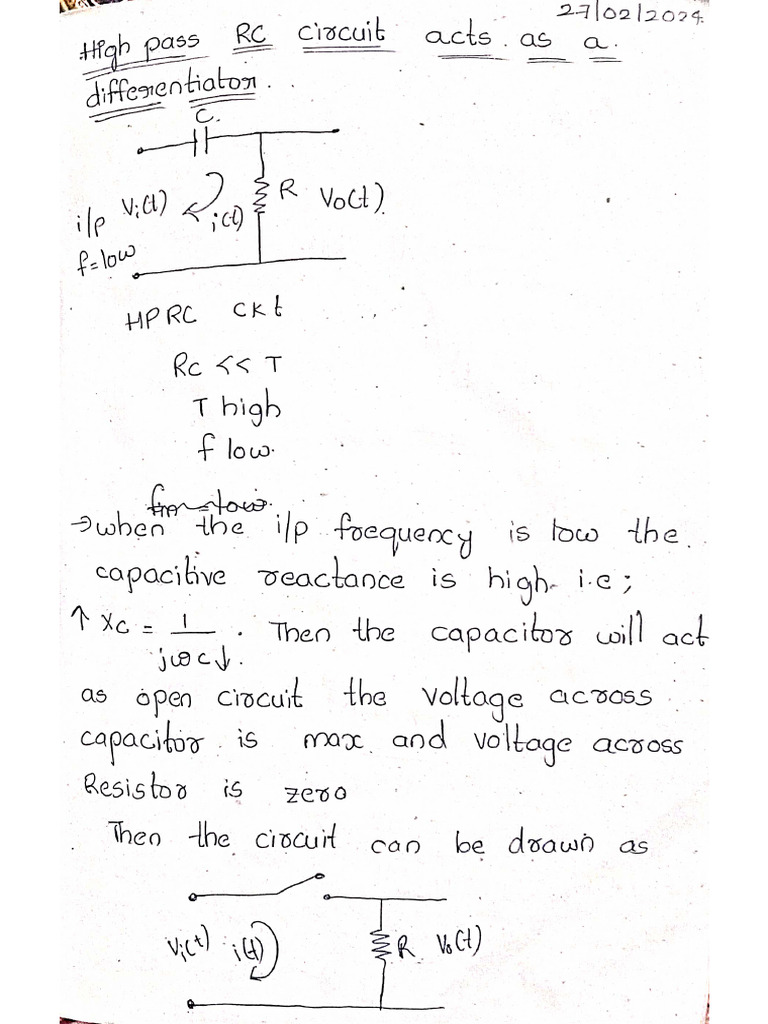 27/02/2024
High pass RC circuit acts as a
differentiator.
C.
i/p Vi(t) i(t) R Vo(t)
f=low
HPRC ckt
RC << T
T high
f low.
→ when the i/p frequency is low the
capacitive reactance is high i.e;
↑ XC = 1/jωC↓ . Then the capacitor will act
as open circuit the voltage across
capacitor is max and voltage across
Resistor is zero
Then the circuit can be drawn as
Vi(t) i(t) R Vo(t)